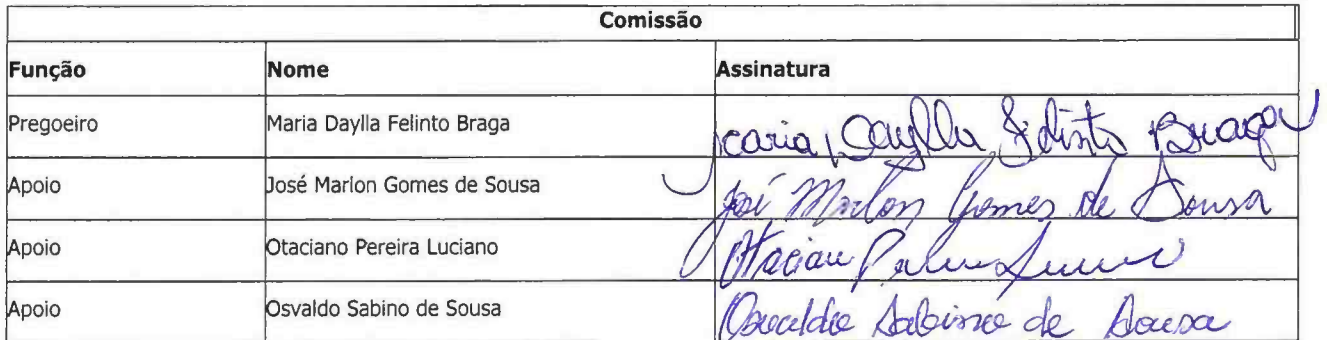 Comissão
Função Nome Assinatura
Pregoeiro Maria Daylla Felinto Braga Maria Daylla Felinto Braga
Apoio José Marlon Gomes de Sousa José Marlon Gomes de Sousa
Apoio Otaciano Pereira Luciano
Apoio Osvaldo Sabino de Sousa Osvaldo Sabino de Sousa